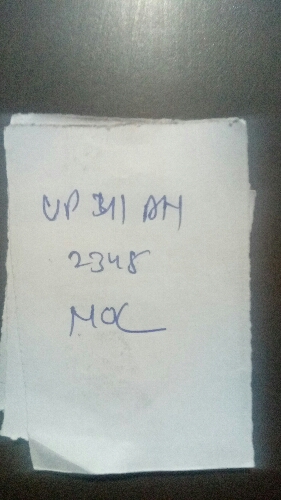 UP 341 AH
2348
MOC